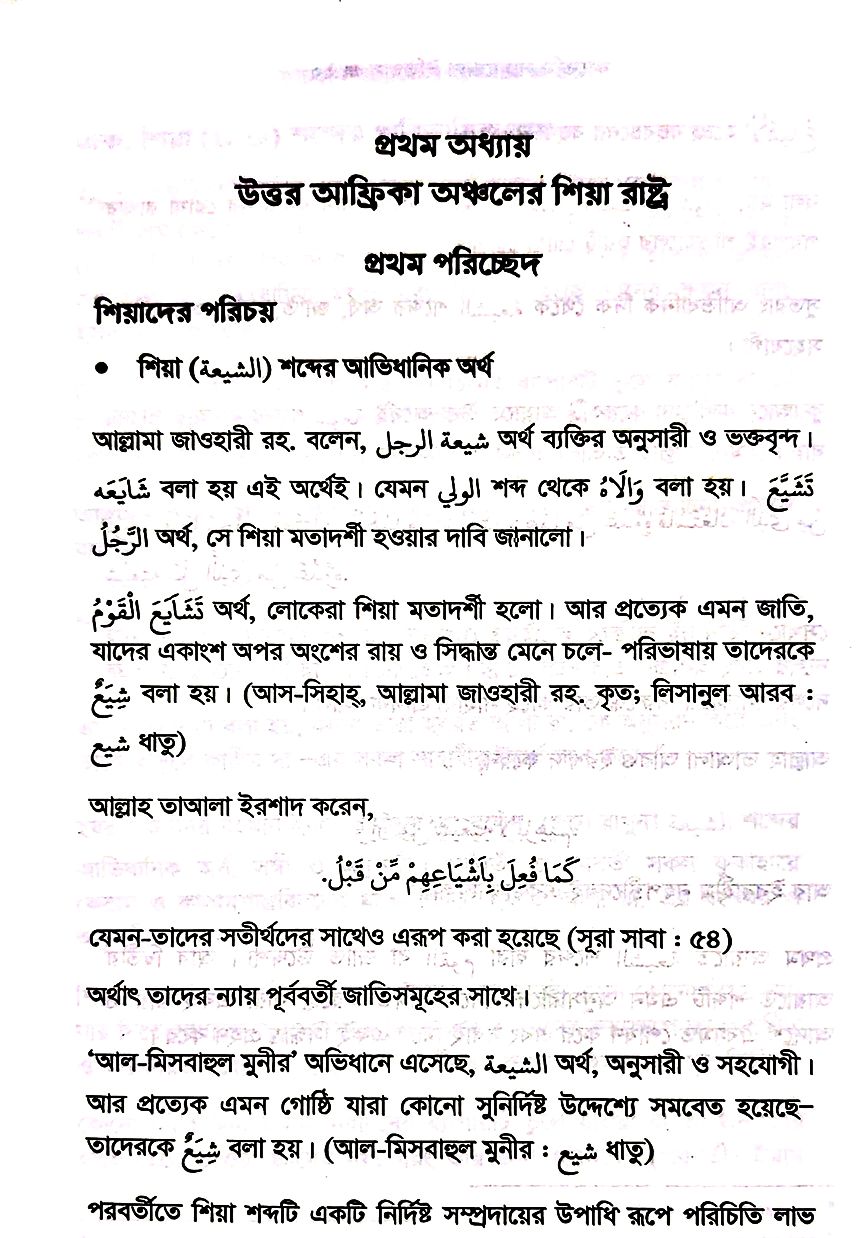 প্রথম অধ্যায়
উত্তর আফ্রিকা অঞ্চলের শিয়া রাষ্ট্র
প্রথম পরিচ্ছেদ
শিয়াদের পরিচয়
• শিয়া (الشيعة) শব্দের আভিধানিক অর্থ
আল্লামা জাওহারী রহ. বলেন, شيعة الرجل অর্থ ব্যক্তির অনুসারী ও ভক্তবৃন্দ।
شَايَعَه বলা হয় এই অর্থেই। যেমন الولي শব্দ থেকে وَالَاهُ বলা হয়। تَشَيَّعَ
الرَّجُلُ অর্থ, সে শিয়া মতাদর্শী হওয়ার দাবি জানালো।
تَشَايَعَ الْقَوْمُ অর্থ, লোকেরা শিয়া মতাদর্শী হলো। আর প্রত্যেক এমন জাতি,
যাদের একাংশ অপর অংশের রায় ও সিদ্ধান্ত মেনে চলে- পরিভাষায় তাদেরকে
شِيَعٌ বলা হয়। (আস-সিহাহ্, আল্লামা জাওহারী রহ. কৃত; লিসানুল আরব :
شيع ধাতু)
আল্লাহ তাআলা ইরশাদ করেন,
كَمَا فُعِلَ بِاَشْيَاعِهِمْ مِّنْ قَبْلُ.
যেমন-তাদের সতীর্থদের সাথেও এরূপ করা হয়েছে (সূরা সাবা : ৫৪)
অর্থাৎ তাদের ন্যায় পূর্ববর্তী জাতিসমূহের সাথে।
‘আল-মিসবাহুল মুনীর’ অভিধানে এসেছে, الشيعة অর্থ, অনুসারী ও সহযোগী।
আর প্রত্যেক এমন গোষ্ঠি যারা কোনো সুনির্দিষ্ট উদ্দেশ্যে সমবেত হয়েছে–
তাদেরকে شِيَعٌ বলা হয়। (আল-মিসবাহুল মুনীর : شيع ধাতু)
পরবর্তীতে শিয়া শব্দটি একটি নির্দিষ্ট সম্প্রদায়ের উপাধি রূপে পরিচিতি লাভ